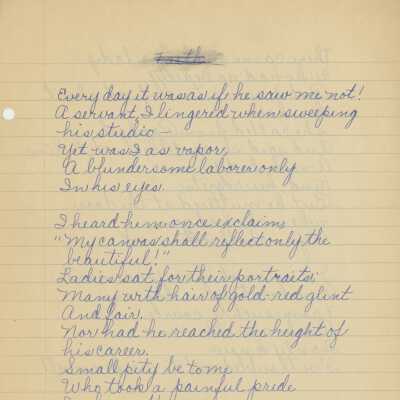 Every day it was as if he saw me not!
A servant, I lingered when sweeping
his studio —
Yet was I as vapor,
A blundersome laborer only
In his eyes.
I heard him once exclaim:
"My canvas shall reflect only the
beautiful!"
Ladies sat for their portraits:
Many with hair of gold-red glint
And fair.
Nor had he reached the height of
his career.
Small pity be to me
Who took a painful pride